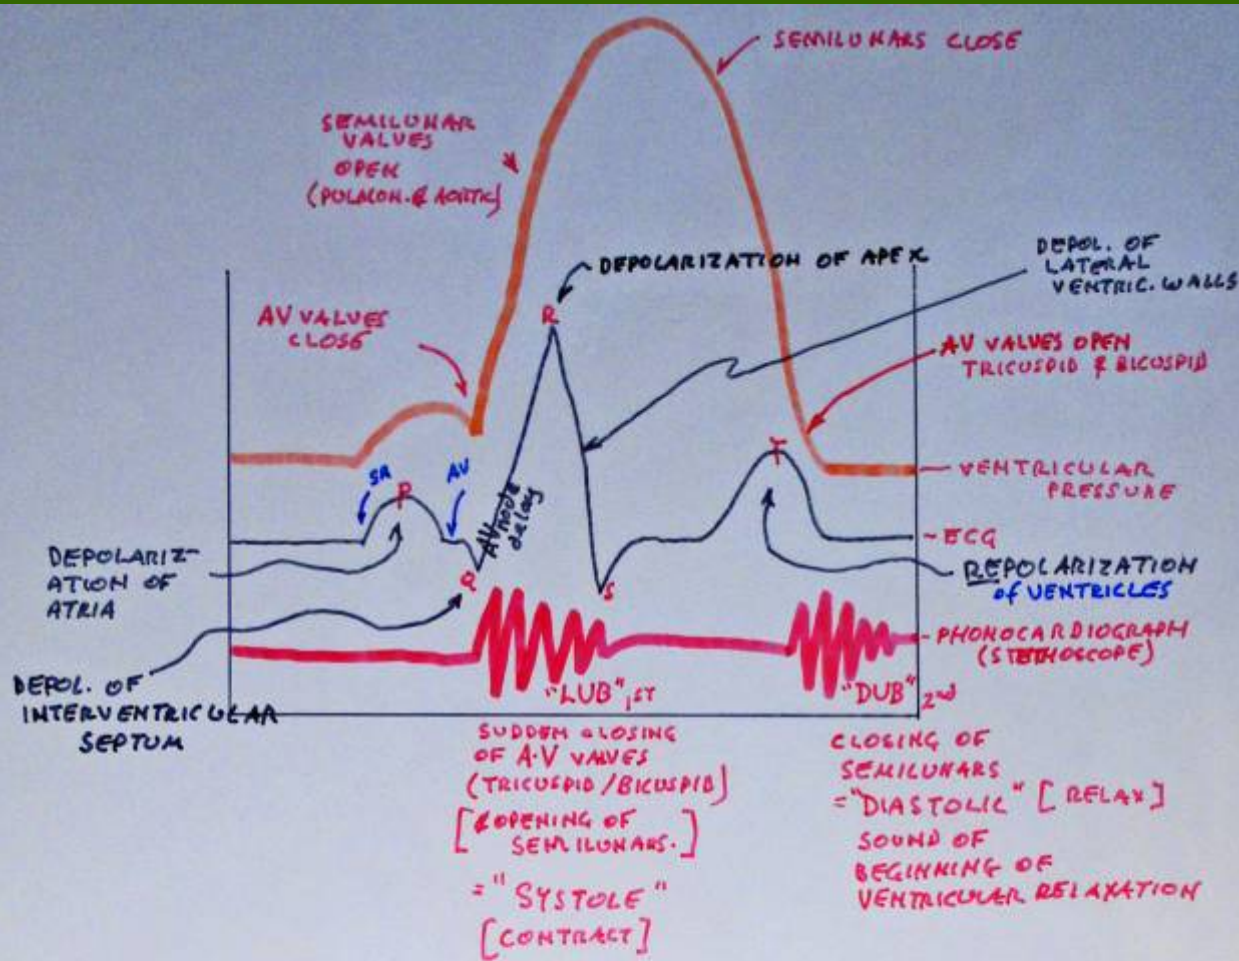 SEMILUNARS CLOSE
SEMILUNAR
VALVES
OPEN
(PULMON. & AORTIC)
DEPOLARIZATION OF APEX
DEPOL. OF
LATERAL
VENTRIC. WALLS
AV VALVES
CLOSE
R
AV VALVES OPEN
TRICUSPID & BICUSPID
SA
P
AV
AV node
delay
T
VENTRICULAR
PRESSURE
ECG
DEPOLARIZ-
ATION OF
ATRIA
Q
S
REPOLARIZATION
of VENTRICLES
PHONOCARDIOGRAPH
(STETHOSCOPE)
DEPOL. OF
INTERVENTRICULAR
SEPTUM
"LUB" 1ST
"DUB" 2nd
SUDDEN CLOSING
OF A-V VALVES
(TRICUSPID/BICUSPID)
[& OPENING OF
SEMILUNARS.]
= "SYSTOLE"
[CONTRACT]
CLOSING OF
SEMILUNARS
= "DIASTOLIC" [RELAX]
SOUND OF
BEGINNING OF
VENTRICULAR RELAXATION